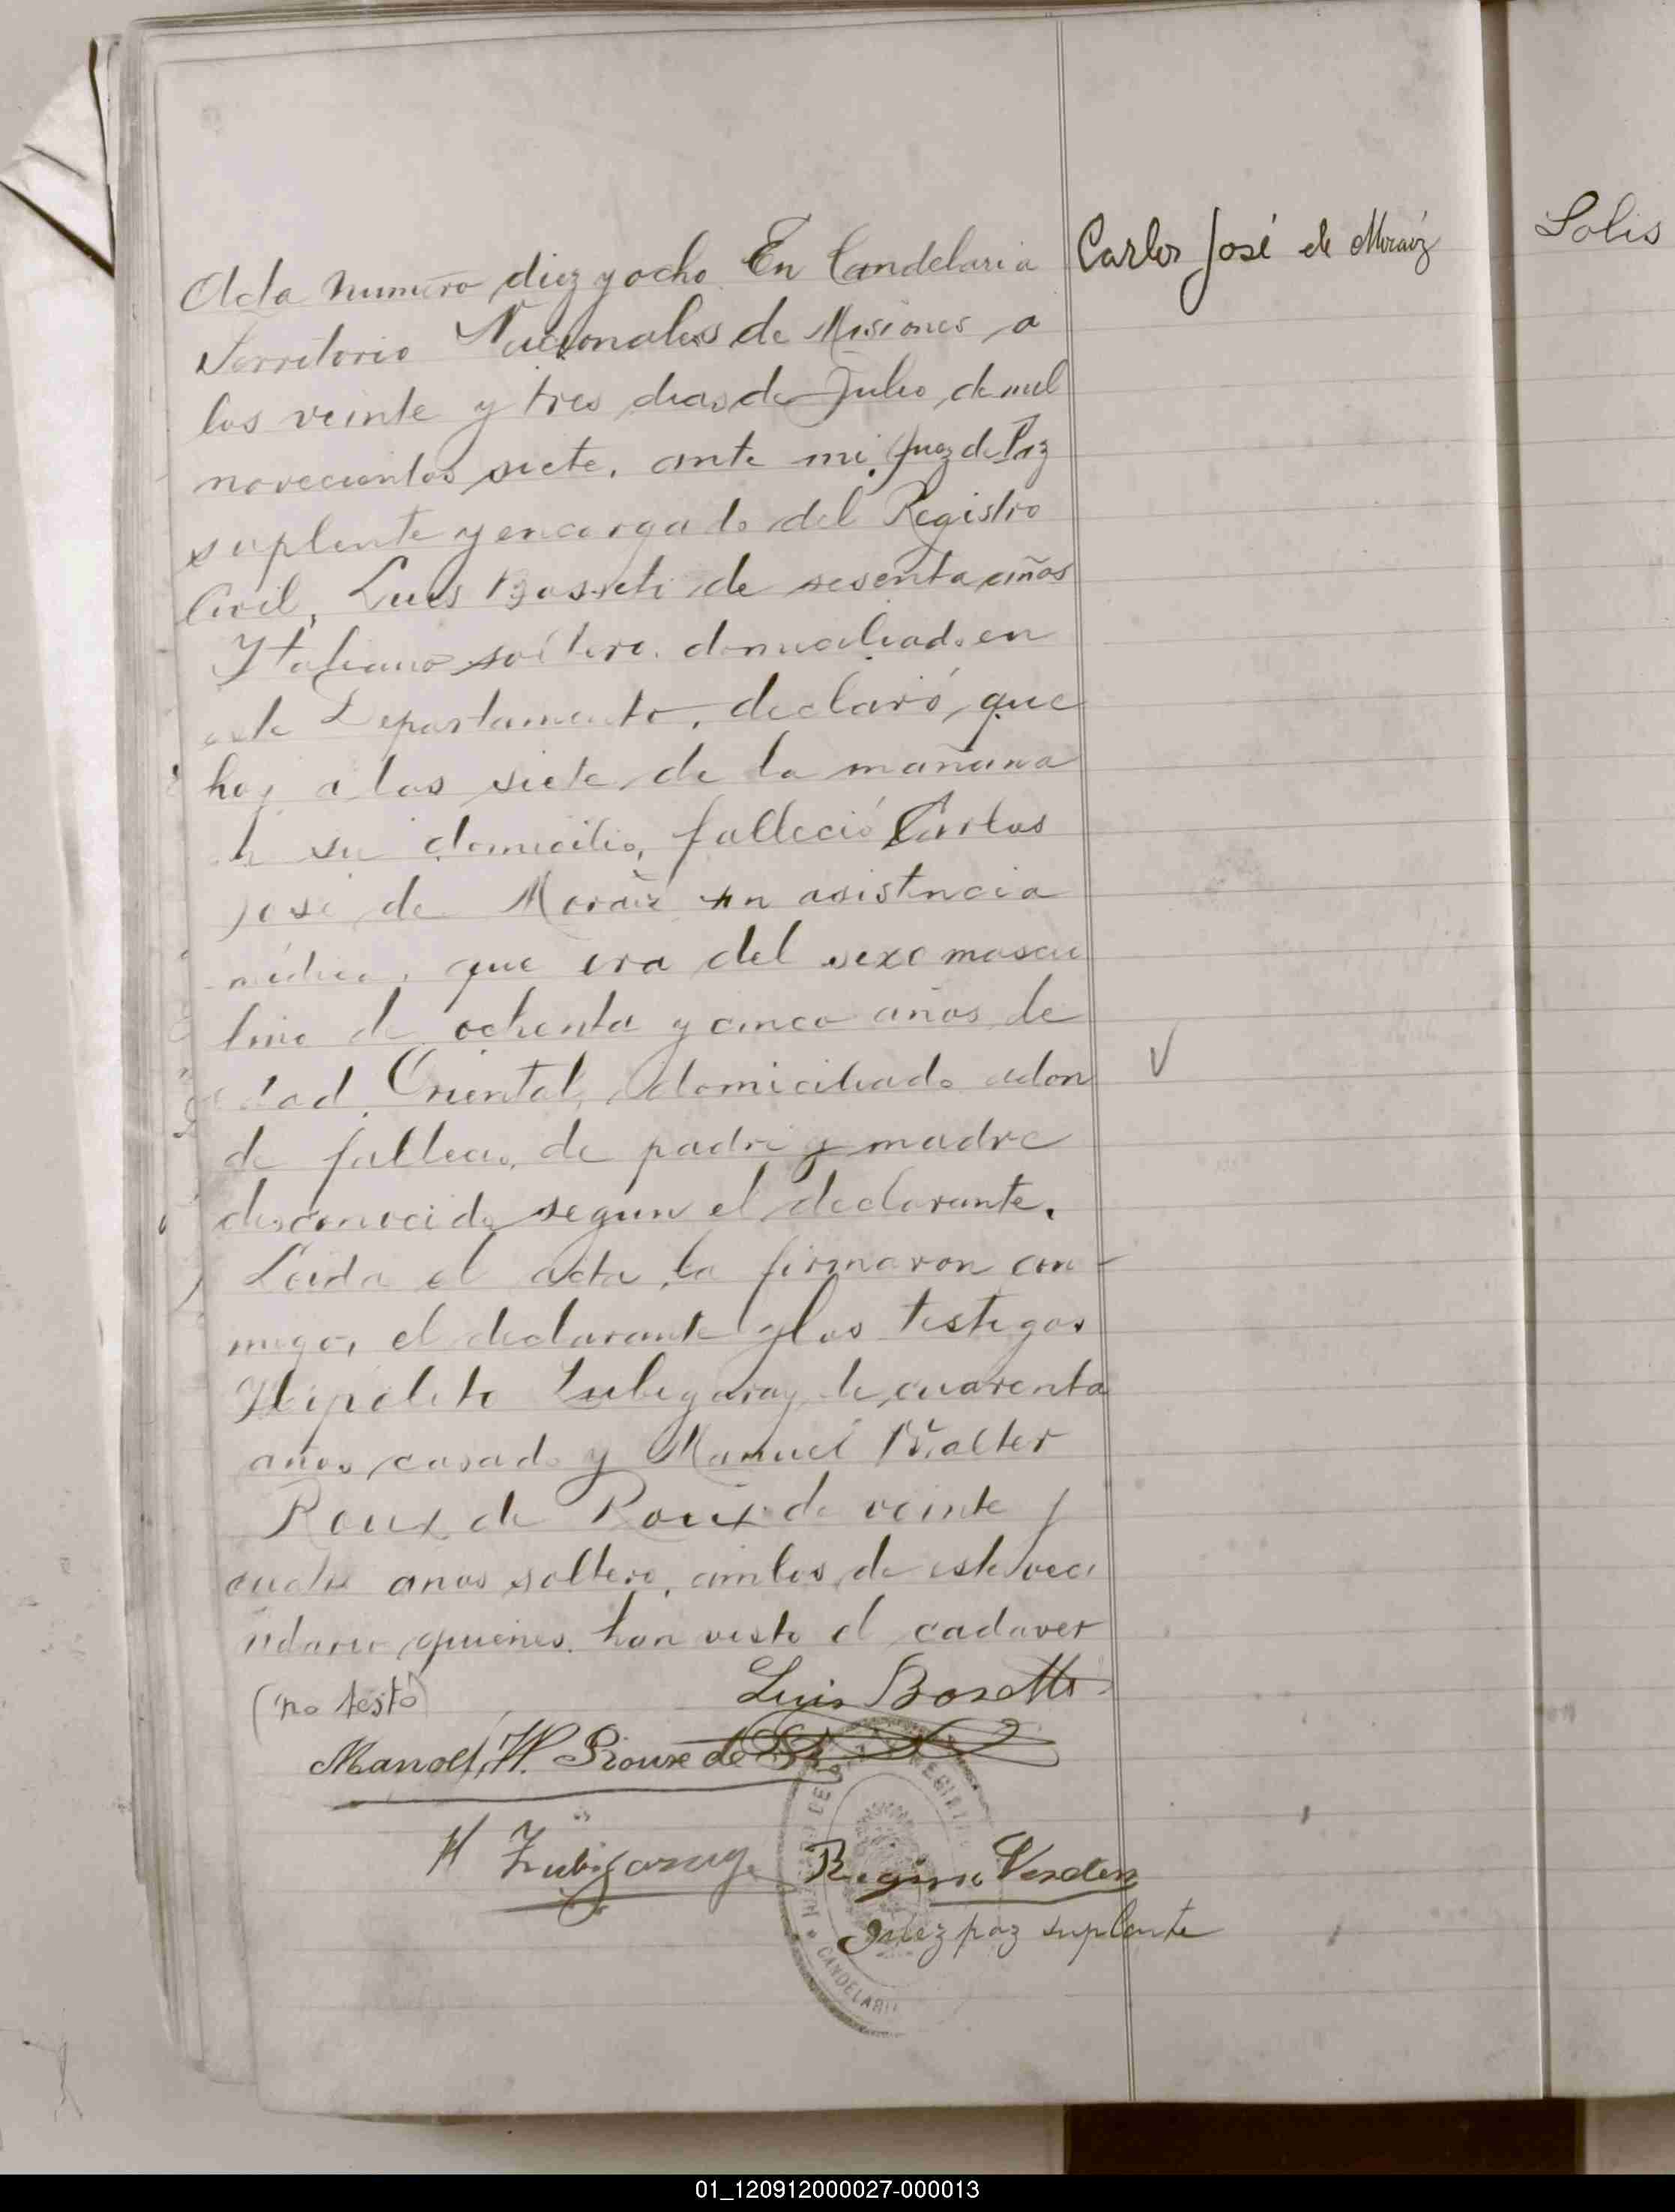 Acta numero diez y ocho. En Candelaria
Territorio Nacionales de Misiones a
los veinte y tres dias de Julio de mil
novecientos siete, ante mi, Juez de Paz
suplente y encargado del Registro
Civil, Luis Bosseti de sesenta años
Italiano soltero domiciliado en
este Departamento, declaró, que
hoy a las siete de la mañana
en su domicilio, falleció Carlos
José de Moraiz sin asistencia
médica, que era del sexo mascu
lino de ochenta y cinco años de
edad, Oriental, domiciliado adon
de fallecio, de padre y madre
desconocido segun el declarante.
Leida el acta, la firmaron con-
migo, el declarante y los testigos
Hipolito Zubigaray de cuarenta
años casado y Manuel Walter
Roux de Roux de veinte y
cuatro años soltero, ambos de este veci
ndario quienes han visto el cadaver
(no testó)
Luis Bosetti
Manoel W. Rioux de
H Zubigaray
Regino
Juez paz suplente
CANDELARIA
Carlos José de Moraiz
Solis
01_120912000027-000013